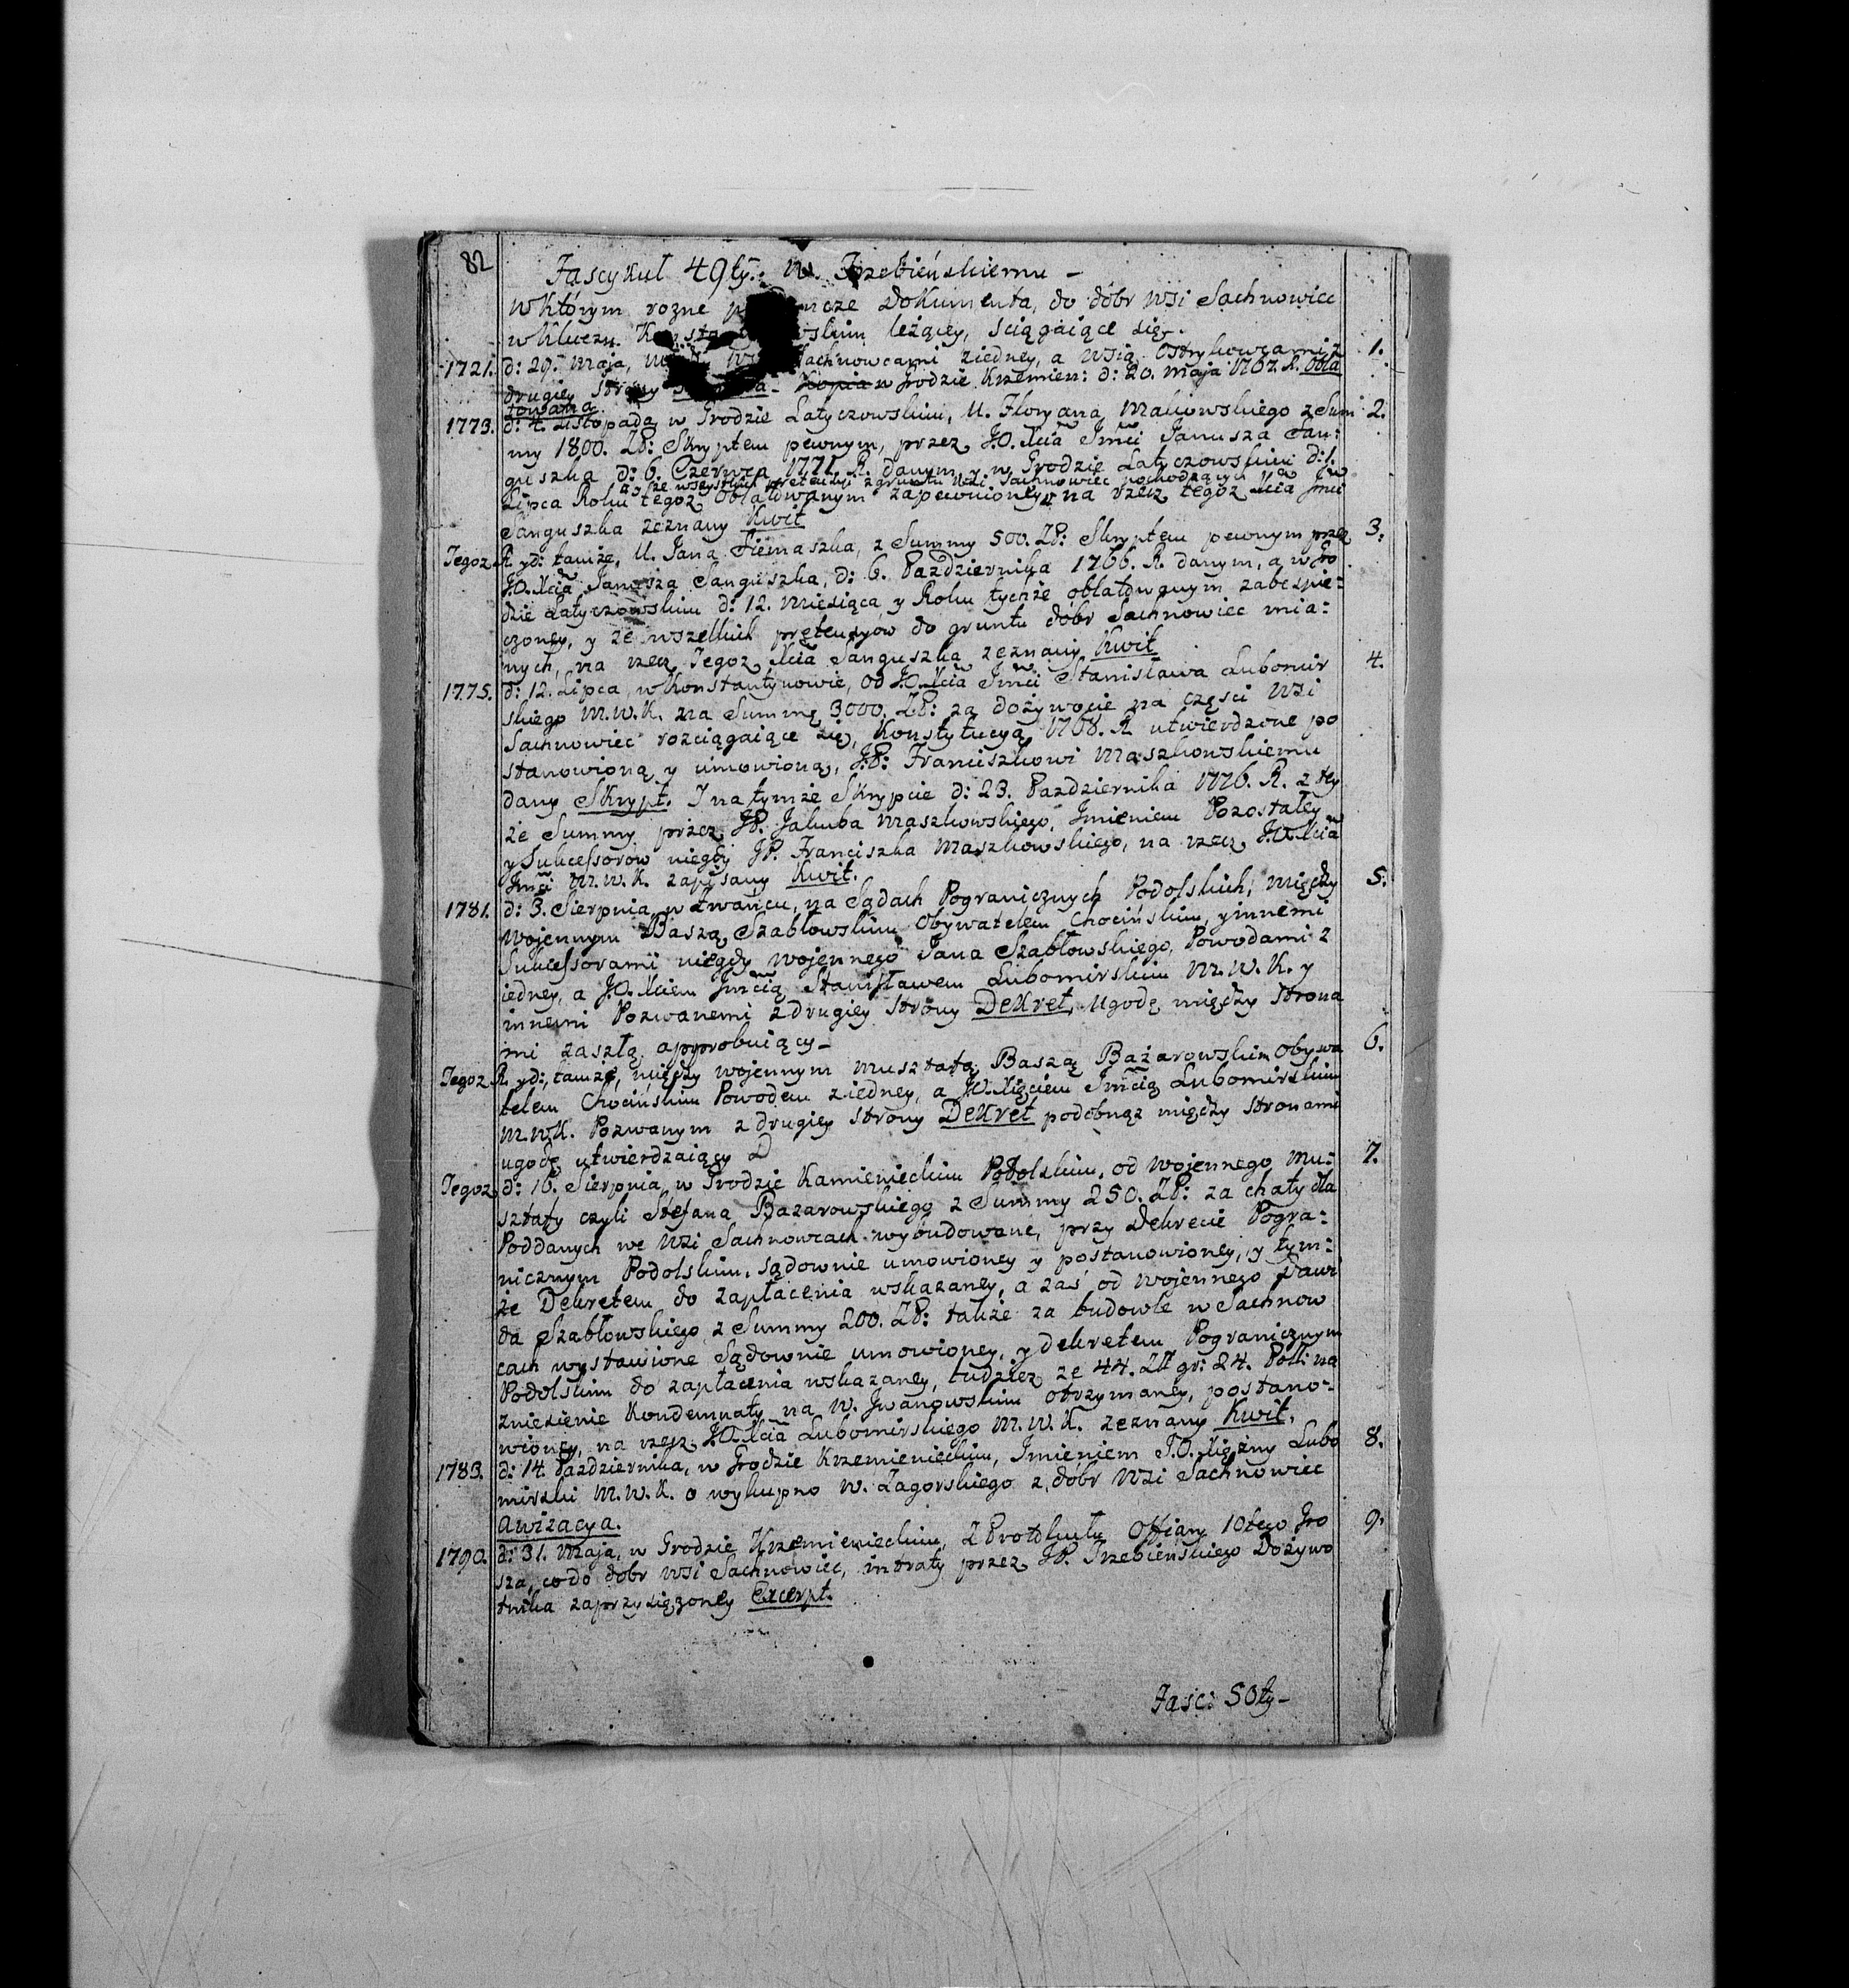 82
Fascykuł 49ty. W. Trzebieńskiemu –
w którym rozne dokumenta, do dóbr wsi Sachnowiec
w Kluczu leżącey, sciągaiące się.
1721. d: 29. Maja, Sachnowcami ziedney, a wsią Ostrykowcami z 1.
drugiey strony Kopia w Grodzie Krzemien: d: 20. Maja 1767. R. Obla
towana.
1773. d: 4. Listopada w Grodzie Latyczowskim, U. Floryana Makowskiego z Sum 2.
my 1800. ZP: Skryptem pewnym, przez J.O. Xcia Jmci Janusza San:
guszka d: 6. Czerwca 1771. R. danym, y w Grodzie Latyczowskim d: 1.
a y ze wszystkich pretensyi z gruntu wsi Sachnowiec pochodzących
Lipca Roku tegoz oblatowanym zapewnioney, na rzecz tegoz Xcia Jmci
Sanguszka zeznany Kwit
Tegoz R. yd: tamże, U. Jana Siemaszka, z Summy 500. ZP: Skryptem pewnym przez 3.
J.O. Xcia Janusza Sanguszka, d: 6. Pazdziernika 1766. R. danym, a w Gro
dzie Latyczowskim d: 12. Miesiąca y Roku tychże oblatowanym zabespie:
czoney, y ze wszelkich pretensyów do gruntu dóbr Sachnowiec mia:
nych, na rzecz Tegoz Xcia Sanguszka zeznany Kwit
1775. d: 12. Lipca, w Konstantynowie, od J.O. Xcia Jmci Stanisława Lubomir 4.
skiego M.W.K. na Summę 3000. ZP: za dożywocie na części wsi
Sachnowiec rozciągaiące się, Konstytucyą 1768. R. utwierdzone po
stanowioną y umowioną, JP: Franciszkowi Maszkowskiemu
dany Skrypt. I na tymże Skrypcie d: 23. Pazdziernika 1776. R. z tey
że Summy przez JP. Jakuba Maszkowskiego, Imieniem Pozostałey
y Sukcessorow niegdy JP. Franciszka Maszkowskiego, na rzecz J.O. Xcia
Jmci M.W.K. zapisany Kwit.
1781. d: 3. Sierpnia, w Żwańcu, na Sądach Pogranicznych Podolskich, między 5.
Wojennym Baszą Szabłowskim Obywatelem Chocińskim, y innemi
Sukcessorami niegdy Wojennego Jana Szabłowskiego, Powodami z
iedney, a J.O. Xciem Jmcią Stanisławem Lubomirskim M.W.K. y
innemi Pozwanemi z drugiey strony Dekret, Ugodę między strona
mi zaszłą approbuiący –
Tegoz R. yd:, tamże, między Wojennym Musztafą Baszą Bazarowskim Obywa 6.
telem Chocińskim Powodem z iedney, a J.O. Xięciem Jmcią Lubomirskim
M.W.K. Pozwanym z drugiey strony Dekret podobnąz między stronami
ugodę utwierdzaiący
Tegoz d: 16. Sierpnia, w Grodzie Kamienieckim Podolskim, od Wojennego Mu: 7.
sztafy czyli Stefana Bazarowskiego z Summy 250. ZP: za chaty dla
Poddanych we wsi Sachnowcach wybudowane, przy Dekrecie Pogra:
nicznym Podolskim, sądownie umowioney y postanowioney, y tym:
że Dekretem do zapłacenia wskazaney, a zaś od Wojennego Dawi
da Szabłowskiego z Summy 200. ZP: także za budowle w Sachnow
cach wystawione Sądownie umowioney, y dekretem Pogranicznym
Podolskim do zapłacenia wskazaney, tudzież ze 44. Zł gr: 24. Poll: na
zniesienie Kondemnaty na W. Jwanowskim otrzymaney, postano:
wioney, na rzecz J.O. Xcia Lubomirskiego M.W.K. zeznany Kwit.
1783. d: 14. Pazdziernika, w Grodzie Krzemienieckim, Imieniem J.O. Xiężny Lubo 8.
mirski M.W.K. o wykupno W. Zagorskiego z dóbr wsi Sachnowiec
Awizacya.
1790. d: 31. Maja, w Grodzie Krzemienieckim, z Protokułu Offiary 10tego Gro 9.
sza, co do dóbr wsi Sachnowiec, intraty przez JP. Trzebieńskiego Dożywo
tnika zaprzysiężoney Excerpt.
Fasc: 50ty –